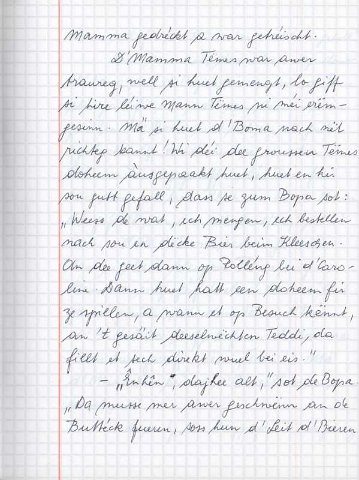 Mamma gedréckt a war getréischt.
D'Mamma Témes war awer
traureg, well si huet gemengt, lo giff
si hire léiwe Mann Témes ni méi erëm-
gesinn. Mä si huet d'Boma nach nët
richteg kannt! Wi déi dee groussen Témes
doheem ausgepaakt huet, huet en hir
sou gutt gefall, dass se zum Bopa sot:
„Weess de wat, ich mengen, ich bestellen
nach sou en décke Bier beim Kleeschen.
An dee geet dann op Polléng bei d'Caro-
line. Dann huet hatt een doheem fir
ze spillen, a wann et op Besuch kënnt,
an 't gesäit deeselwechten Teddi, da
fillt et sech direkt wuel bei eis."
– „Ënhën", dajhee alt," sot de Bopa
„Da musse mer awer geschwënn an de
Butték fueren, soss hun d'Leit d'Bieren